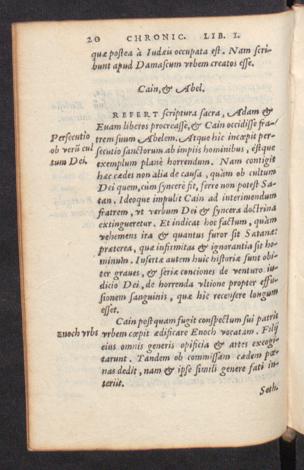 20 CHRONIC. LIB. I.
quæ postea à Iudæis occupata est. Nam scri-
bunt apud Damascum vrbem creatos esse.
Cain, & Abel.
REFERT scriptura sacra, Adam &
Euam liberos procreasse, & Cain occidisse fra-
Persecutio trem suum Abelem. Atque hic incœpit per-
ob verū cul secutio sanctorum ab impiis hominibus, éstque
tum Dei. exemplum planè horrendum. Nam contigit
hæc cædes non alia de causa, quàm ob cultum
Dei quem, cùm syncerè fit, ferre non potest Sa-
tan. Ideoque impulit Cain ad interimendum
fratrem, vt verbum Dei & syncera doctrina
extingueretur. Et indicat hoc factum, quàm
vehemens ira & quantus furor sit Satanæ:
præterea, quæ infirmitas & ignorantia sit ho-
minum. Insertæ autem huic historiæ sunt obi-
ter graues, & seriæ conciones de venturo iu-
dicio Dei, de horrenda vltione propter effu-
sionem sanguinis, quæ hic recensere longum
esset.
Cain postquam fugit conspectum sui patris
Enoch vrbs vrbem cœpit ædificare Enoch vocatam. Filij
eius omnis generis opificia & artes excogi-
tarunt. Tandem ob commissam cædem pœ-
nas dedit, nam & ipse simili genere fati in-
teriit.
Seth.